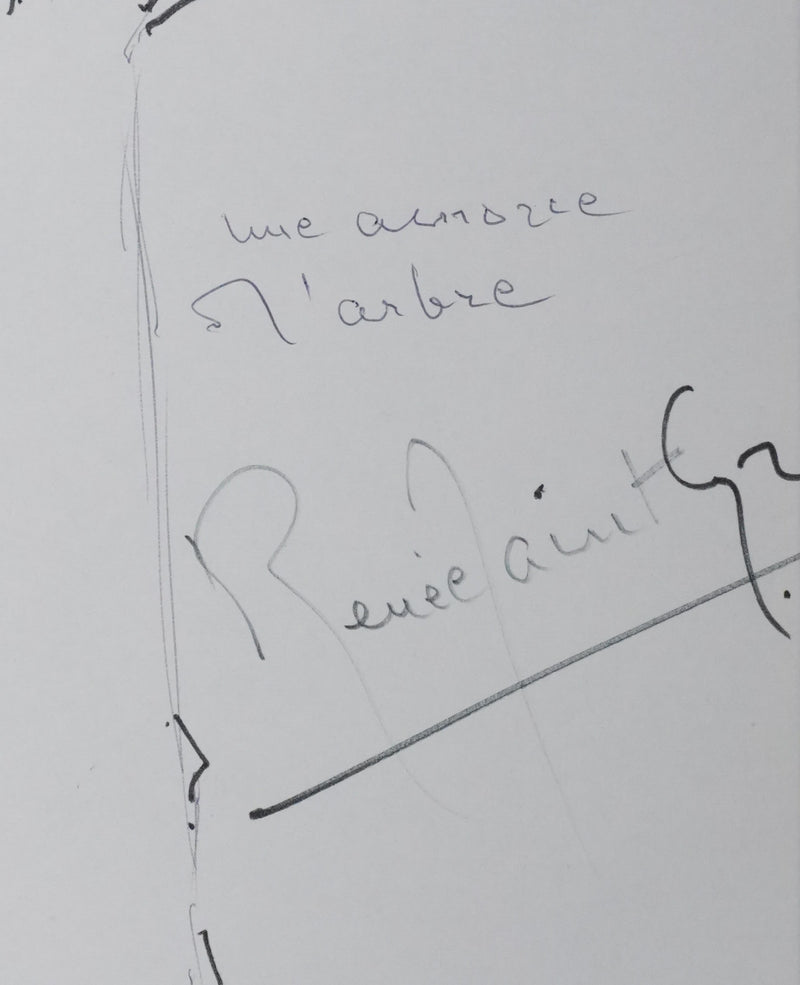 une amorce
d'arbre
Renée Saint Cyr